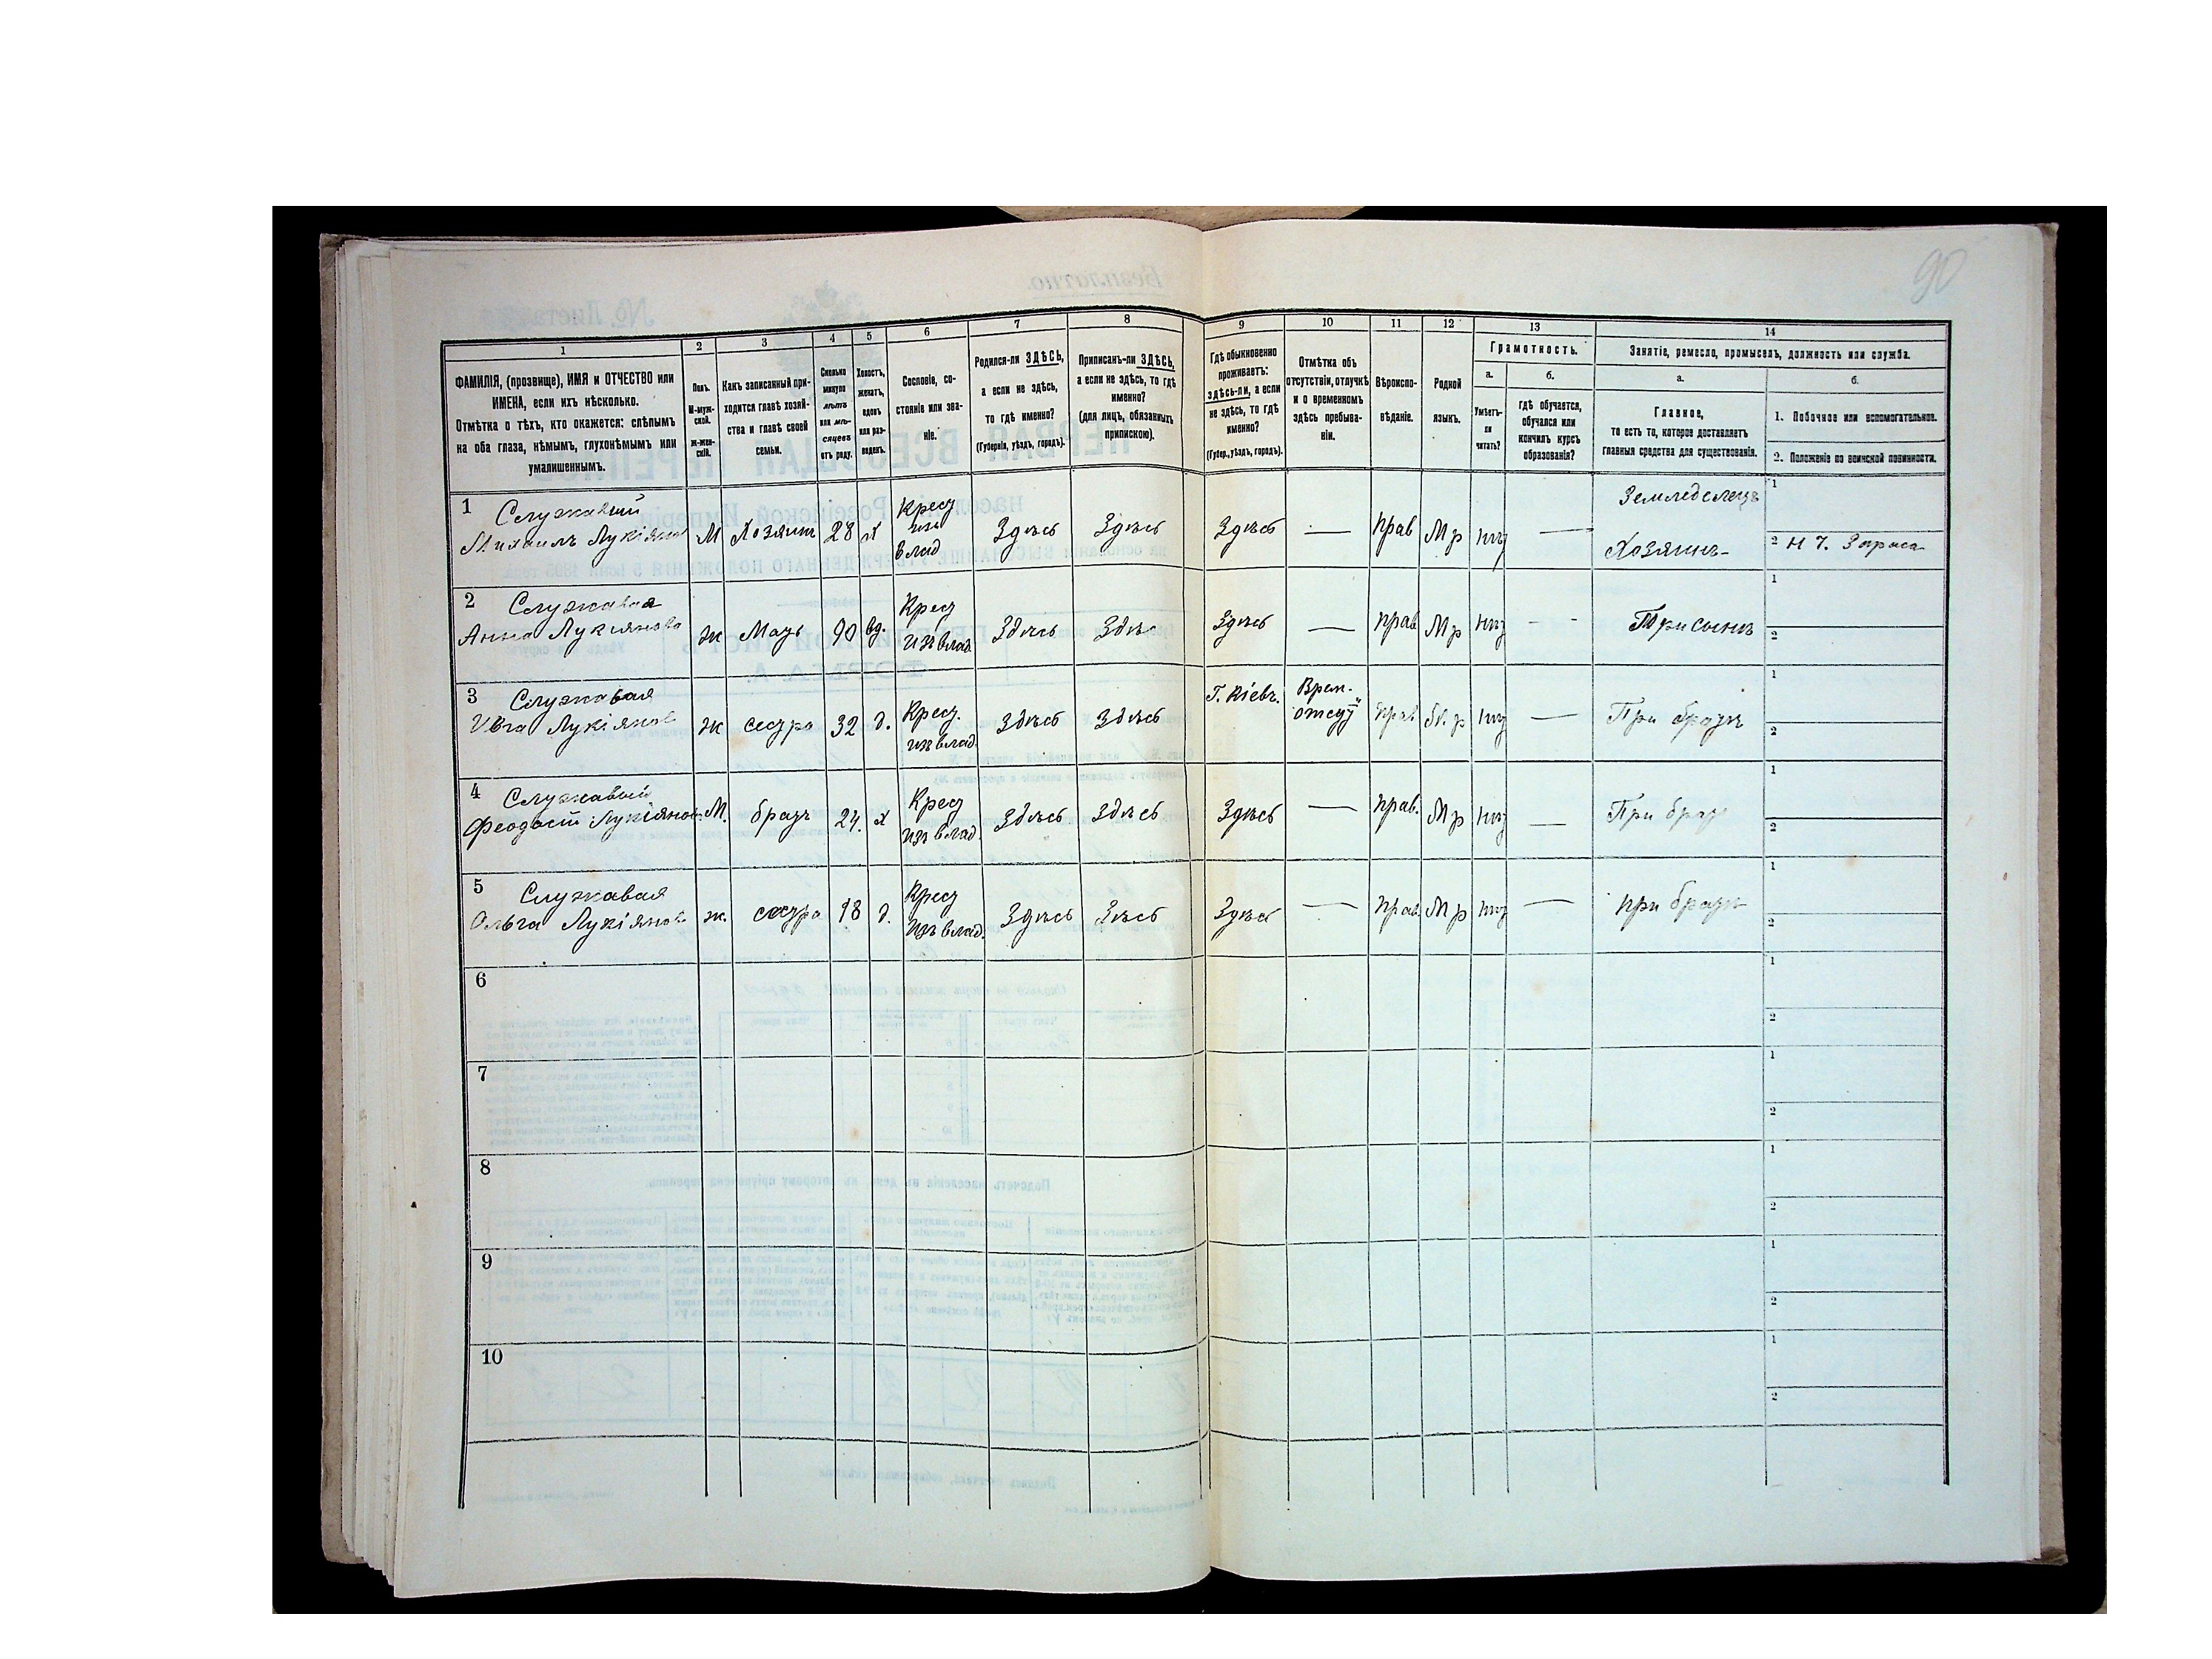 90
1
2
3
4
5
6
7
8
9
10
11
12
13
14
ФАМИЛІЯ, (прозвище), ИМЯ и ОТЧЕСТВО или
ИМЕНА, если ихъ нѣсколько.
Отмѣтка о тѣхъ, кто окажется: слѣпымъ
на оба глаза, нѣмымъ, глухонѣмымъ или
умалишеннымъ.
Полъ.
М-муж-
ской.
ж-жен-
скій.
Какъ записанный при-
ходится главѣ хозяй-
ства и главѣ своей
семьи.
Сколько
минуло
лѣтъ
или мѣ-
сяцевъ
отъ роду.
Холостъ,
женатъ,
вдовъ
или раз-
веденъ.
Сословіе, со-
стояніе или зва-
ніе.
Родился-ли ЗДѢСЬ,
а если не здѣсь,
то гдѣ именно?
(Губернія, уѣздъ, городъ).
Приписанъ-ли ЗДѢСЬ,
а если не здѣсь, то гдѣ
именно?
(для лицъ, обязанныхъ
припискою).
Гдѣ обыкновенно
проживаетъ:
здѣсь-ли, а если
не здѣсь, то гдѣ
именно?
(Губер., уѣздъ, городъ).
Отмѣтка объ
отсутствіи, отлучкѣ
и о временномъ
здѣсь пребыва-
ніи.
Вѣроиспо-
вѣданіе.
Родной
языкъ.
Грамотность.
а.
Умѣетъ-
ли
читать?
б.
гдѣ обучается,
обучался или
кончилъ курсъ
образованія?
Занятіе, ремесло, промыселъ, должность или служба.
а.
Главное,
то есть то, которое доставляетъ
главныя средства для существованія.
б.
1. Побочное или вспомогательное.
2. Положеніе по воинской повинности.
1 Служавый
Михаилъ Лукіянов М Хозяинъ 28 х Крест изъ влад Здѣсь Здѣсь Здѣсь — прав Мр нѣт — Земледелецъ Хозяинъ 1
2
2 Служавая
Анна Лукіянова ж Мать 90 вд. Крест изъ влад Здѣсь Здѣс Здѣсь — прав Мр нѣт - - При сынѣ 1
2
3 Служавая
Лукіянов ж сестра 32 д. Крест. изъ влад. Здѣсь Здѣсь Г. Кіевъ. Врем. отсут прав М. р нѣт — При братѣ 1
2
4 Служавый
Феодосій Лукіянов. М. братъ 24. х Крест изъ влад Здѣсь Здѣсь Здѣсь — прав. Мр нѣт — При брат 1
2
5 Служавая
Ольга Лукіянов ж. сестра 18 д. Крест изъ влад. Здѣсь Здѣсь Здѣсь — прав. Мр нѣт — при братѣ 1
2
6 1
2
7 1
2
8 1
2
9 1
2
10 1
2